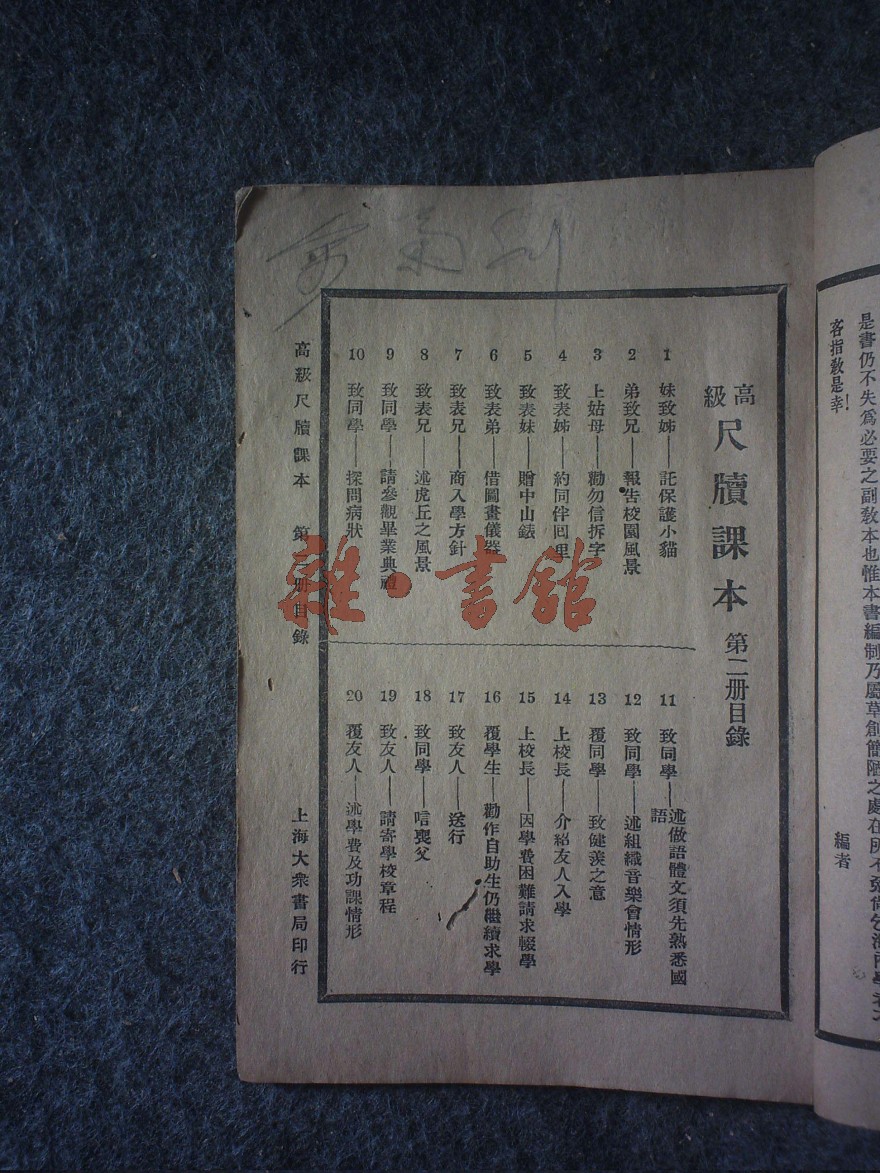 是書仍不失爲必要之副敎本也惟本書編制乃屬草創簡陋之處在所不免尙乞海內學者不
客指敎是幸!
編者
高級尺牘課本 第二册目錄
1 妹致姊——託保護小貓
2 弟致兄——報告校園風景
3 上姑母——勸勿信拆字
4 致表姊——約同伴回里
5 致表妹——贈中山錶
6 致表弟——借圖畫儀器
7 致表兄——商入學方針
8 致表兄——述虎丘之風景
9 致同學——請參觀畢業典禮
10 致同學——探問病狀
11 致同學——述做語體文須先熟悉國語
12 致同學——述組織音樂會情形
13 覆同學——致健羨之意
14 上校長——介紹友人入學
15 上校長——因學費困難請求輟學
16 覆學生——勸作自助生仍繼續求學
17 致友人——送行
18 致同學——唁喪父
19 致友人——請寄學校章程
20 覆友人——述學費及功課情形
高級尺牘課本 第二册目錄
上海大衆書局印行
雜·書館